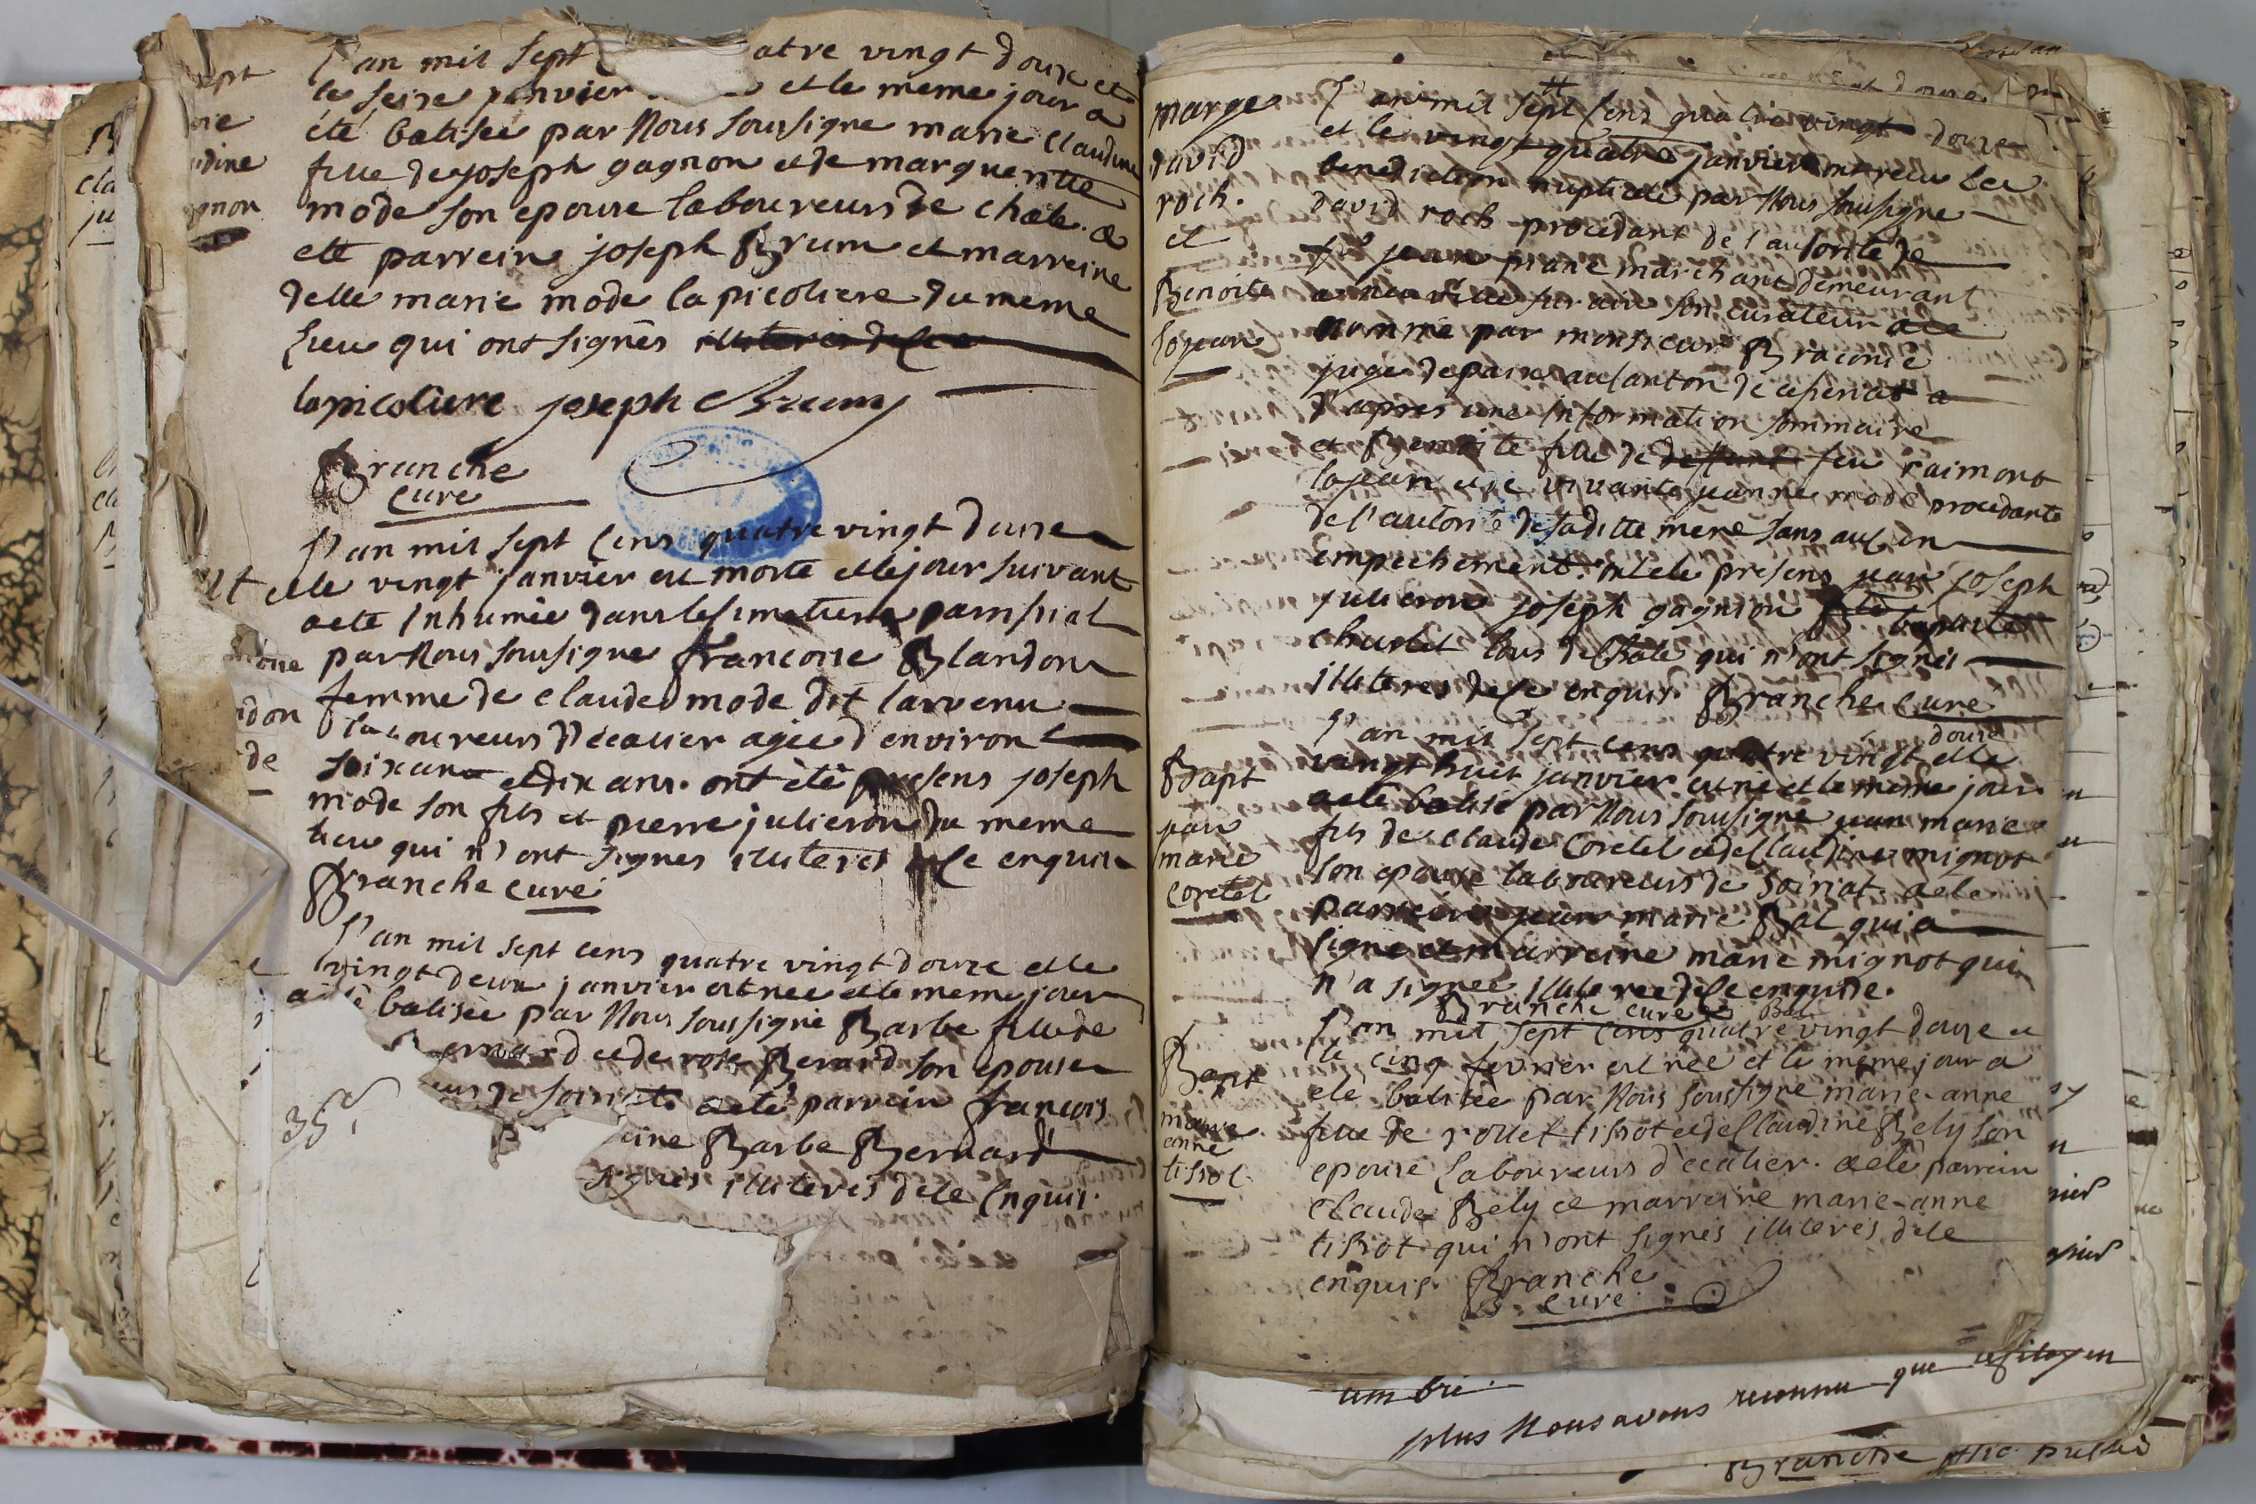 ept
oie
udine
gnon
L'an mil sept atre vingt douze et
le seize janvier et le meme jour a
été batisée par Nous soussigné marie claudine
fille de joseph gagnon et de margueritte
mode son epouse laboureurs de chale. a
eté parrein joseph Brum et marreine
delle marie mode lapicoliere du meme
lieu qui ont signés
lapicoliere joseph Brum
Branche
curé
L'an mil sept cens quatre vingt douze
et le vingt janvier est morte et le jour suivant
a eté inhumée dans le simetiere
par Nous soussigné francoise Blandon
femme de claude mode dit larvenu
laboureurs d'écalier agée d'environ
soixante et dix ans. ont été presens joseph
mode son fils et pierre julieron du meme
lieu qui n'ont signés illiterés de ce enquis
Branche curé
don
de
L'an mil sept cens quatre vingt douze et le
vingt deux janvier est née et le meme jour
a été batisée par Nous soussigné Barbe fille de
ernard et de rose Berard son epouse
eurs de soiriat a eté parrein francois
eine Barbe Bernard
signés illiterés de ce enquis.
marge
david
roch.
et
Benoite
lojean
L'an mil sept cens quatre vingt douze
et le vingt quatre janvier ont recu la
benediction nuptiale par Nous soussigné
david roch procedant de l'autorité de
sr jean piane marchant demeurant
a neuville sur ain son curateur
nommé par monsieur Braconié
juge de paix au canton de
d'apres une information sommaire
et Benoite fille de feu raimont
lojean et de vivante jeanne mode procedante
de l'autorité de saditte mere sans aucun
empechement. ont été presens jean joseph
julieron joseph gagnion Bte
tous de chale qui n'ont signés
illiterés de ce enquis. Branche curé
Bapt
jean
marie
coretel
L'an mil sept cens quatre vingt douze et le
vingt huit janvier est né et le meme jour
a eté batisé par Nous soussigné jean marie
fils de claude coretel et de claudine mignot
son epouse laboureurs de soiriat. a eté
parrein jean marie Bal qui a
signé et marreine marie mignot qui
n'a signée illiterée de ce enquise.
Branche curé Bal
Bapt
marie
anne
tissot
L'an mil sept cens quatre vingt douze et
le cinq fevrier est née et le meme jour a
eté batisée par Nous soussigné marie-anne
fille de rollet tissot et de claudine Bely son
epouse laboureurs d'ecalier. a eté parrein
claude Bely et marreine marie-anne
tissot qui n'ont signés illiterés de ce
enquis. Branche
curé
plus Nous avons reconnu que
Branche